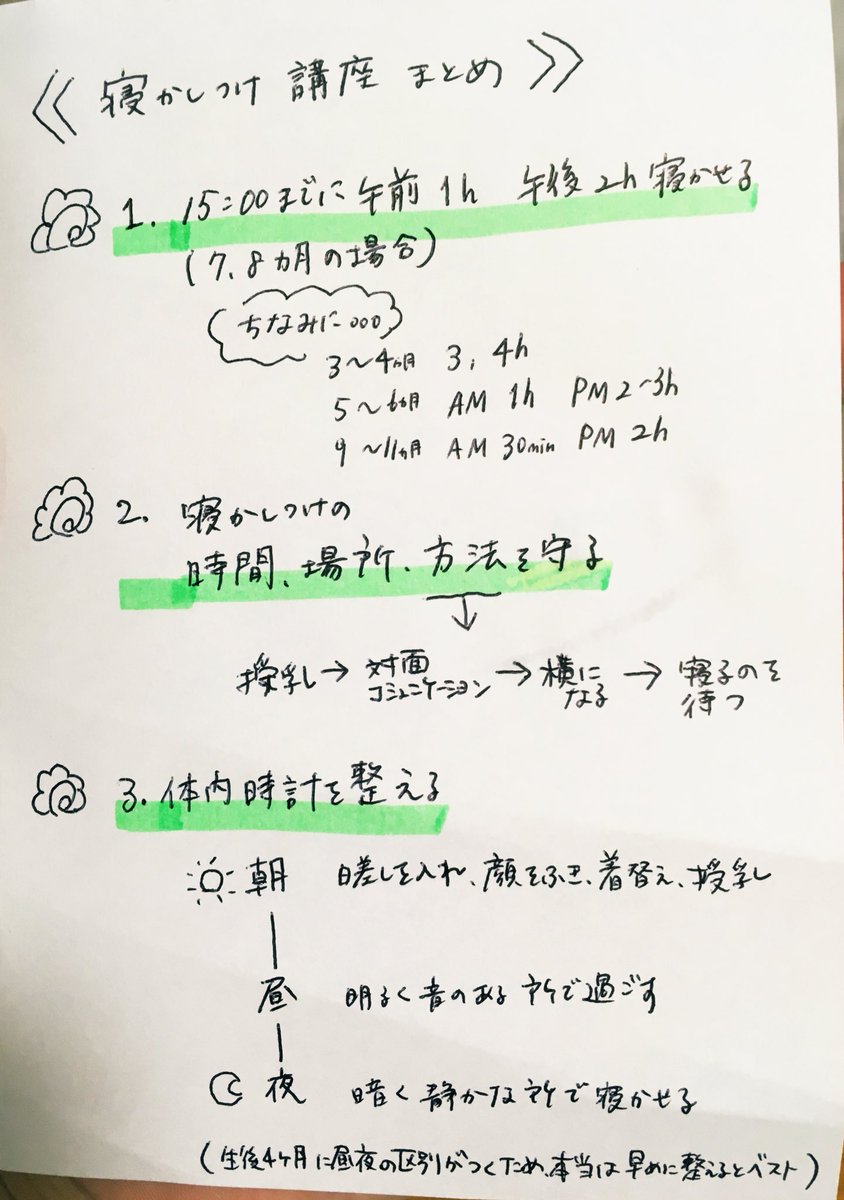 《 寝かしつけ 講座 まとめ 》
1. 15:00までに午前 1h 午後 2h 寝かせる
(7、8カ月の場合)
ちなみに...
3〜4ヵ月 3、4h
5〜6ヵ月 AM 1h PM 2~3h
9〜11ヵ月 AM 30min PM 2h
2. 寝かしつけの
時間、場所、方法を守る
↓
授乳し→ 対面コミュニケーション → 横になる → 寝るのを待つ
3. 体内時計を整える
朝 日差しを入れ、顔をふき、着替え、授乳し
昼 明るく音のある所で過ごす
夜 暗く静かな所で寝かせる
(生後4ヶ月に昼夜の区別がつくため、本当は早めに整えるとベスト)